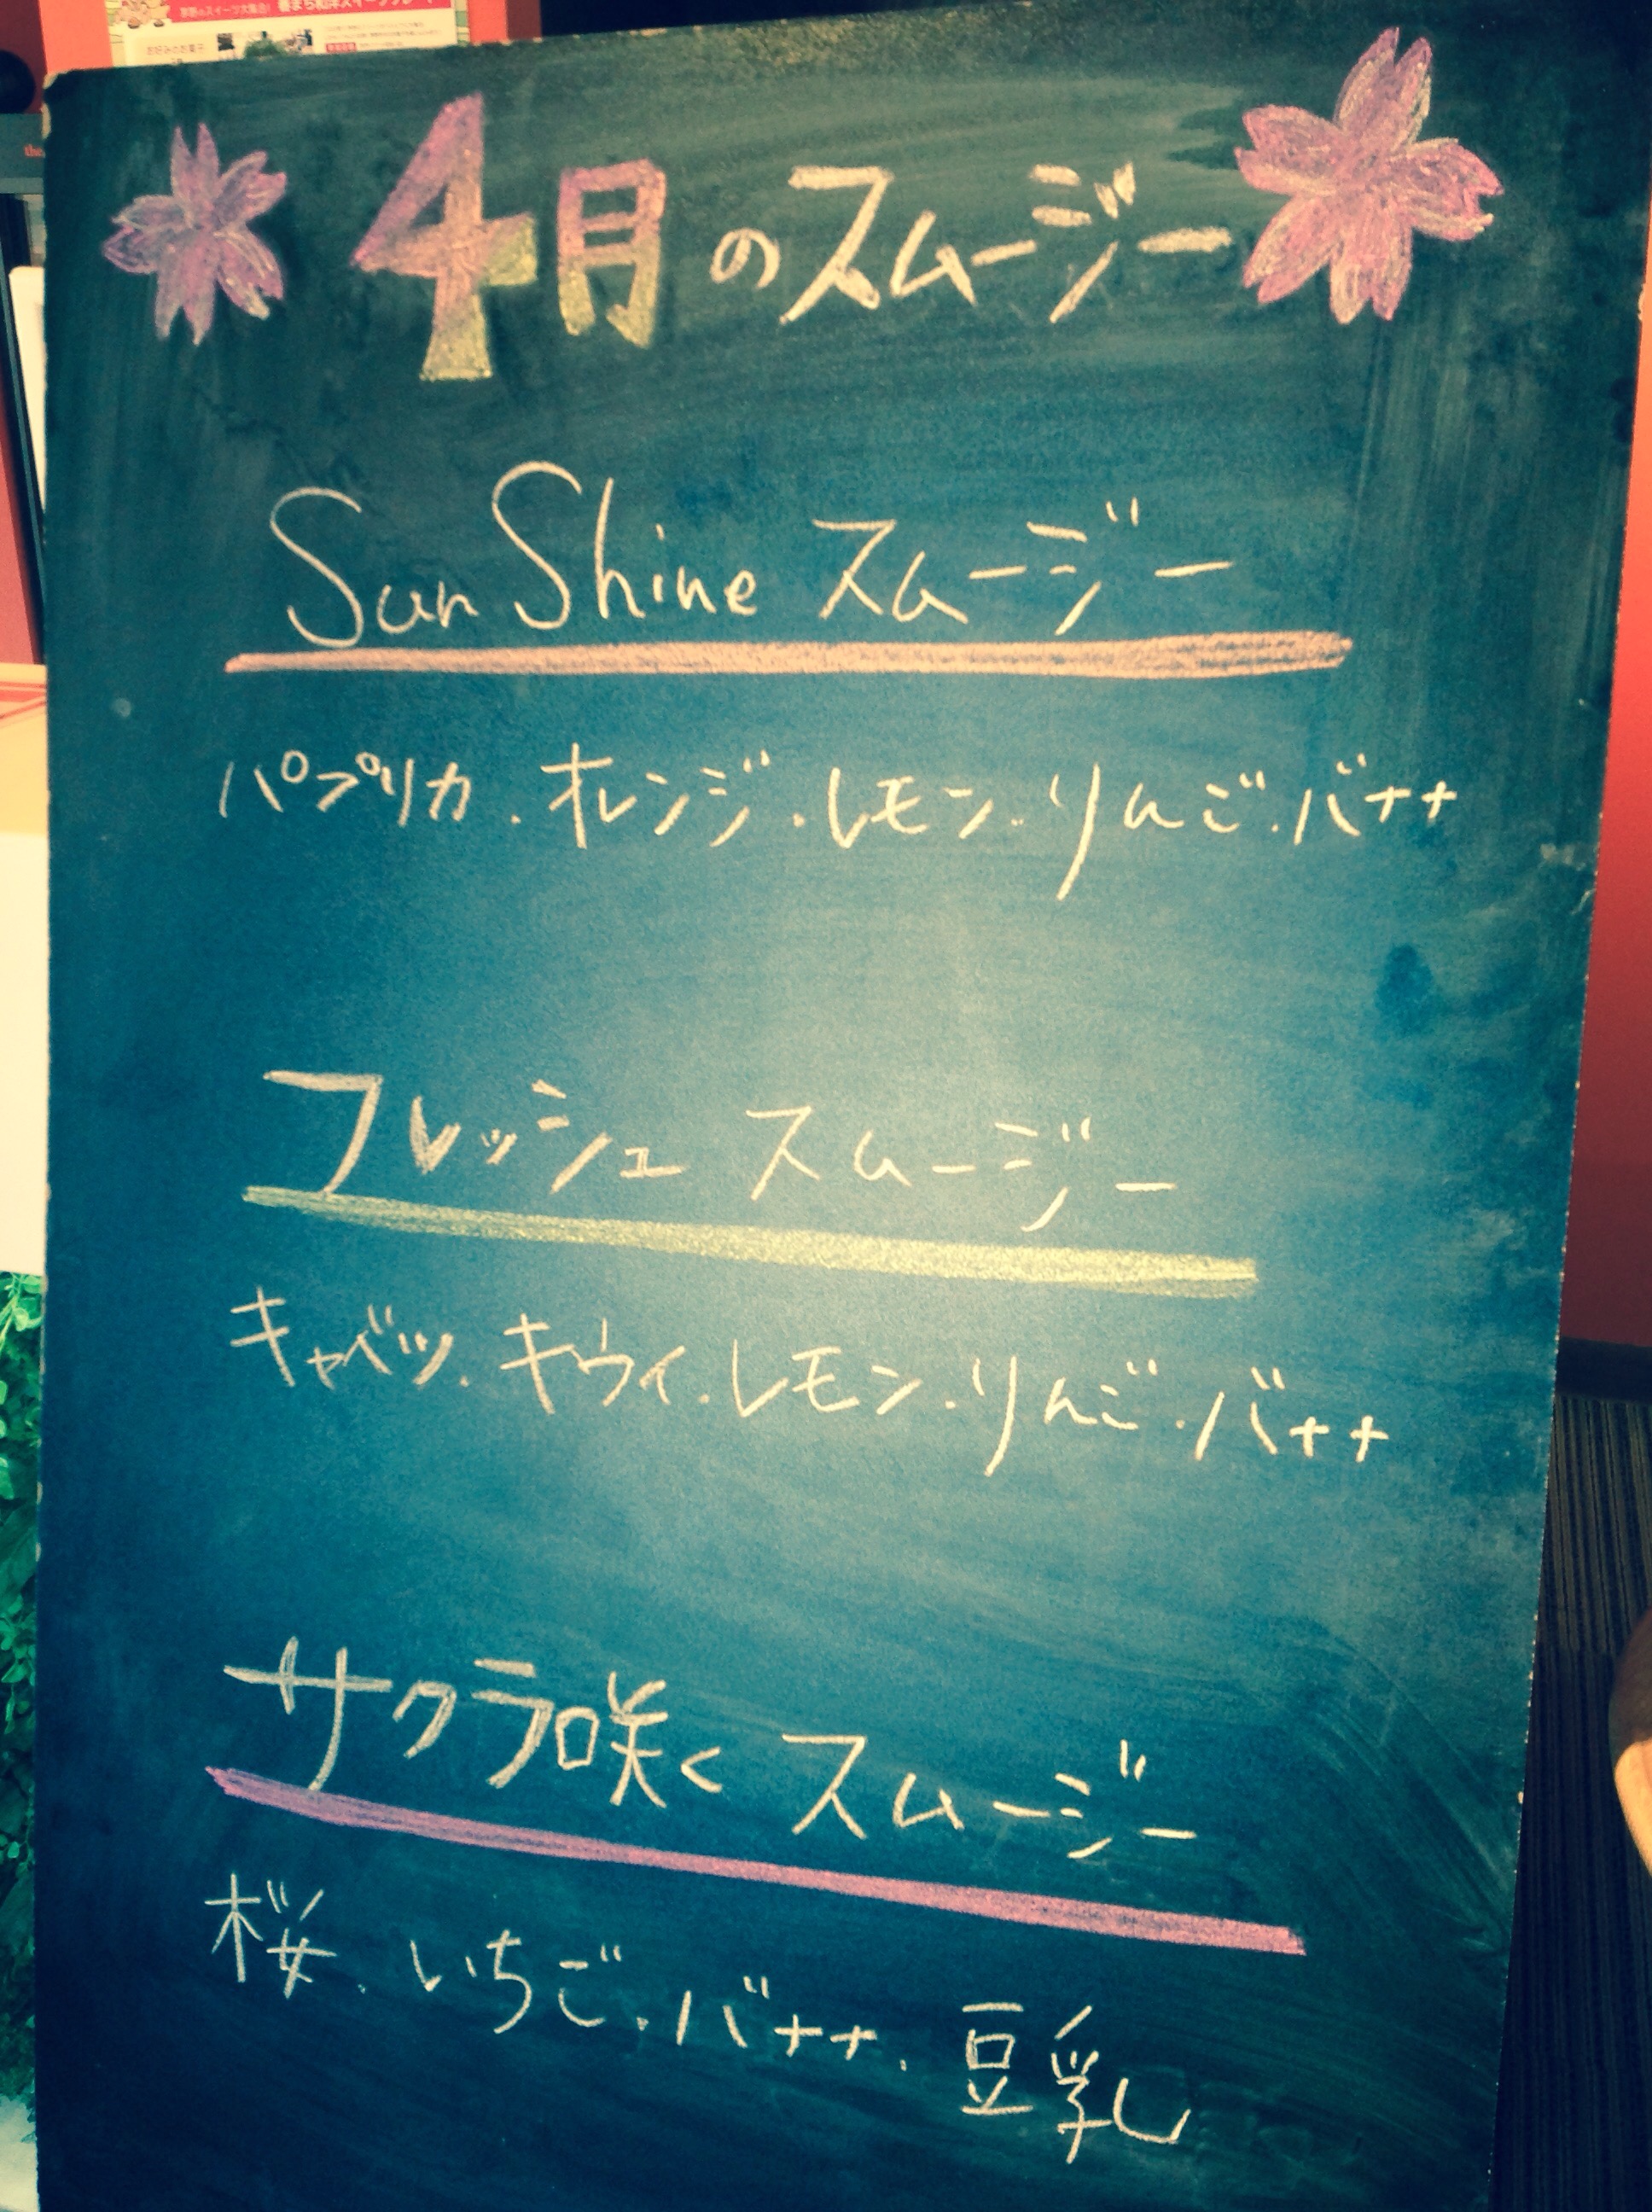 お好みのお菓子
4月のスムージー
Sun Shine スムージー
パプリカ・オレンジ・レモン・りんご・バナナ
フレッシュ スムージー
キャベツ・キウイ・レモン・りんご・バナナ
サクラ咲く スムージー
桜・いちご・バナナ・豆乳